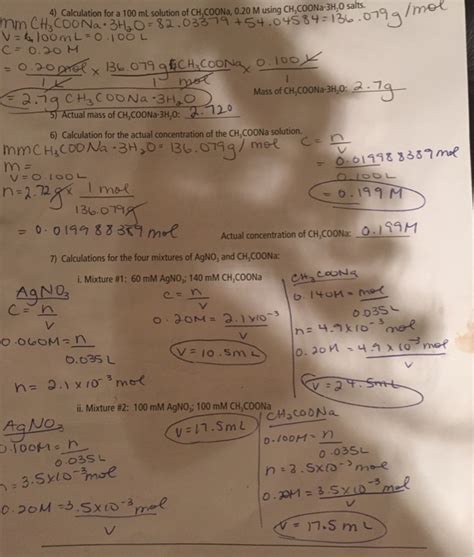 4) Calculation for a 100 mL solution of CH₃COONa, 0.20 M using CH₃COONa·3H₂O salts.
mm CH₃COONa·3H₂O = 82.03379 + 54.04584 = 136.079 g/mol
V = 100mL = 0.100 L
C = 0.20 M
= 0.20 mol / 1 × 136.079 g CH₃COONa / 1 mol × 0.100 L / 1
= 2.7g CH₃COONa·3H₂O
Mass of CH₃COONa·3H₂O: 2.7g
5) Actual mass of CH₃COONa·3H₂O: 2.720
6) Calculation for the actual concentration of the CH₃COONa solution.
mm CH₃COONa·3H₂O = 136.079g/mol
m =
V = 0.100L
n = 2.72g × 1 mol / 136.079g
= 0.019988389 mol
C = n / V
= 0.019988389 mol / 0.100L
= 0.199 M
Actual concentration of CH₃COONa: 0.199M
7) Calculations for the four mixtures of AgNO₃ and CH₃COONa:
i. Mixture #1: 60 mM AgNO₃; 140 mM CH₃COONa
AgNO₃
C = n / V
0.060M = n / 0.035L
n = 2.1 × 10⁻³ mol
C = n / V
0.20M = 2.1×10⁻³ / V
V = 10.5mL
CH₃COONa
0.140M = mol / 0.035L
n = 4.9×10⁻³ mol
0.20M = 4.9×10⁻³ mol / V
V = 24.5mL
ii. Mixture #2: 100 mM AgNO₃; 100 mM CH₃COONa
AgNO₃
0.100M = n / 0.035L
n = 3.5×10⁻³ mol
0.20M = 3.5×10⁻³ mol / V
V = 17.5mL
CH₃COONa
0.100M = n / 0.035L
n = 3.5×10⁻³ mol
0.20M = 3.5×10⁻³ mol / V
V = 17.5 mL